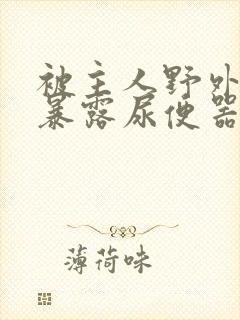 被主人野外
暴露尿便器
薄荷味